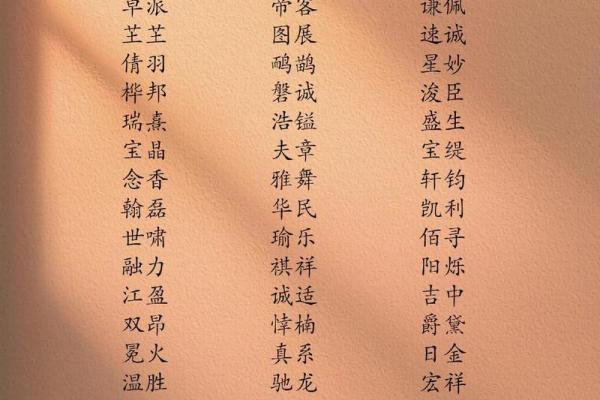 草派 帝客 谦佩
芏芏 图展 速诚
倩羽 鸸鹋 星妙
桦邦 磐诚 浚臣
瑞熹 浩镒 盛生
宝晶 夫章 宝缇
念香 雅舞 轩钧
翰磊 华民 凯利
世啸 瑜乐 佰寻
融力 祺祥 阳烁
江盈 诚适 吉中
双昂 悻楠 爵黛
冕火 真系 日金
温胜 驰龙 宏祥